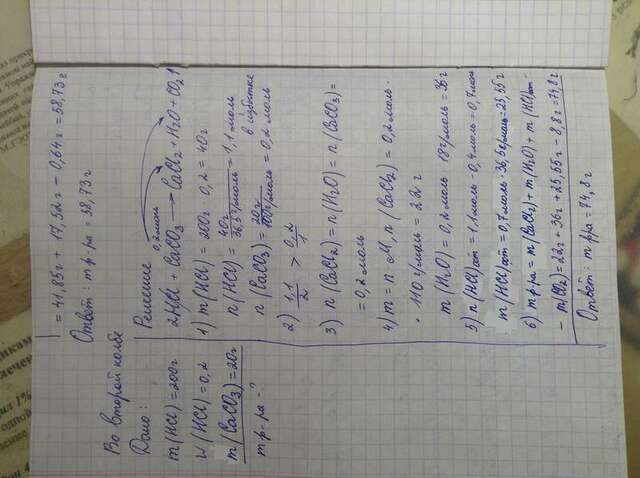 = 41,85г + 17,52г - 0,64г = 58,73г
Ответ: m р-ра = 58,73г
Во второй колбе
Дано:
m(HCl) = 200г
w(HCl) = 0,2
m(CaCO3) = 20г
m р-ра -?
Решение
0,2моль
2HCl + CaCO3 → CaCl2 + H2O + CO2↑
1) m(HCl) = 200г 0,2 = 40г
n(HCl) = 40г / 36,5г/моль = 1,1 моль
в избытке
n(CaCO3) = 20г / 100г/моль = 0,2 моль
2) 1,1/2 > 0,2/1
3) n(CaCl2) = n(H2O) = n(CaCO3) =
= 0,2 моль
4) m = n · M, n(CaCl2) = 0,2 моль ·
· 110 г/моль = 22г
m(H2O) = 0,2 моль · 18г/моль = 36г
5) n(HCl)ост = 1,1 моль - 0,4 моль = 0,7 моль
m(HCl)ост = 0,7 моль · 36,5г/моль = 25,55г
6) m р-ра = m(CaCl2) + m(H2O) + m(HCl)ост -
- m(CO2) = 22г + 36г + 25,55г - 8,8г = 74,8г
Ответ: m р-ра = 74,8г